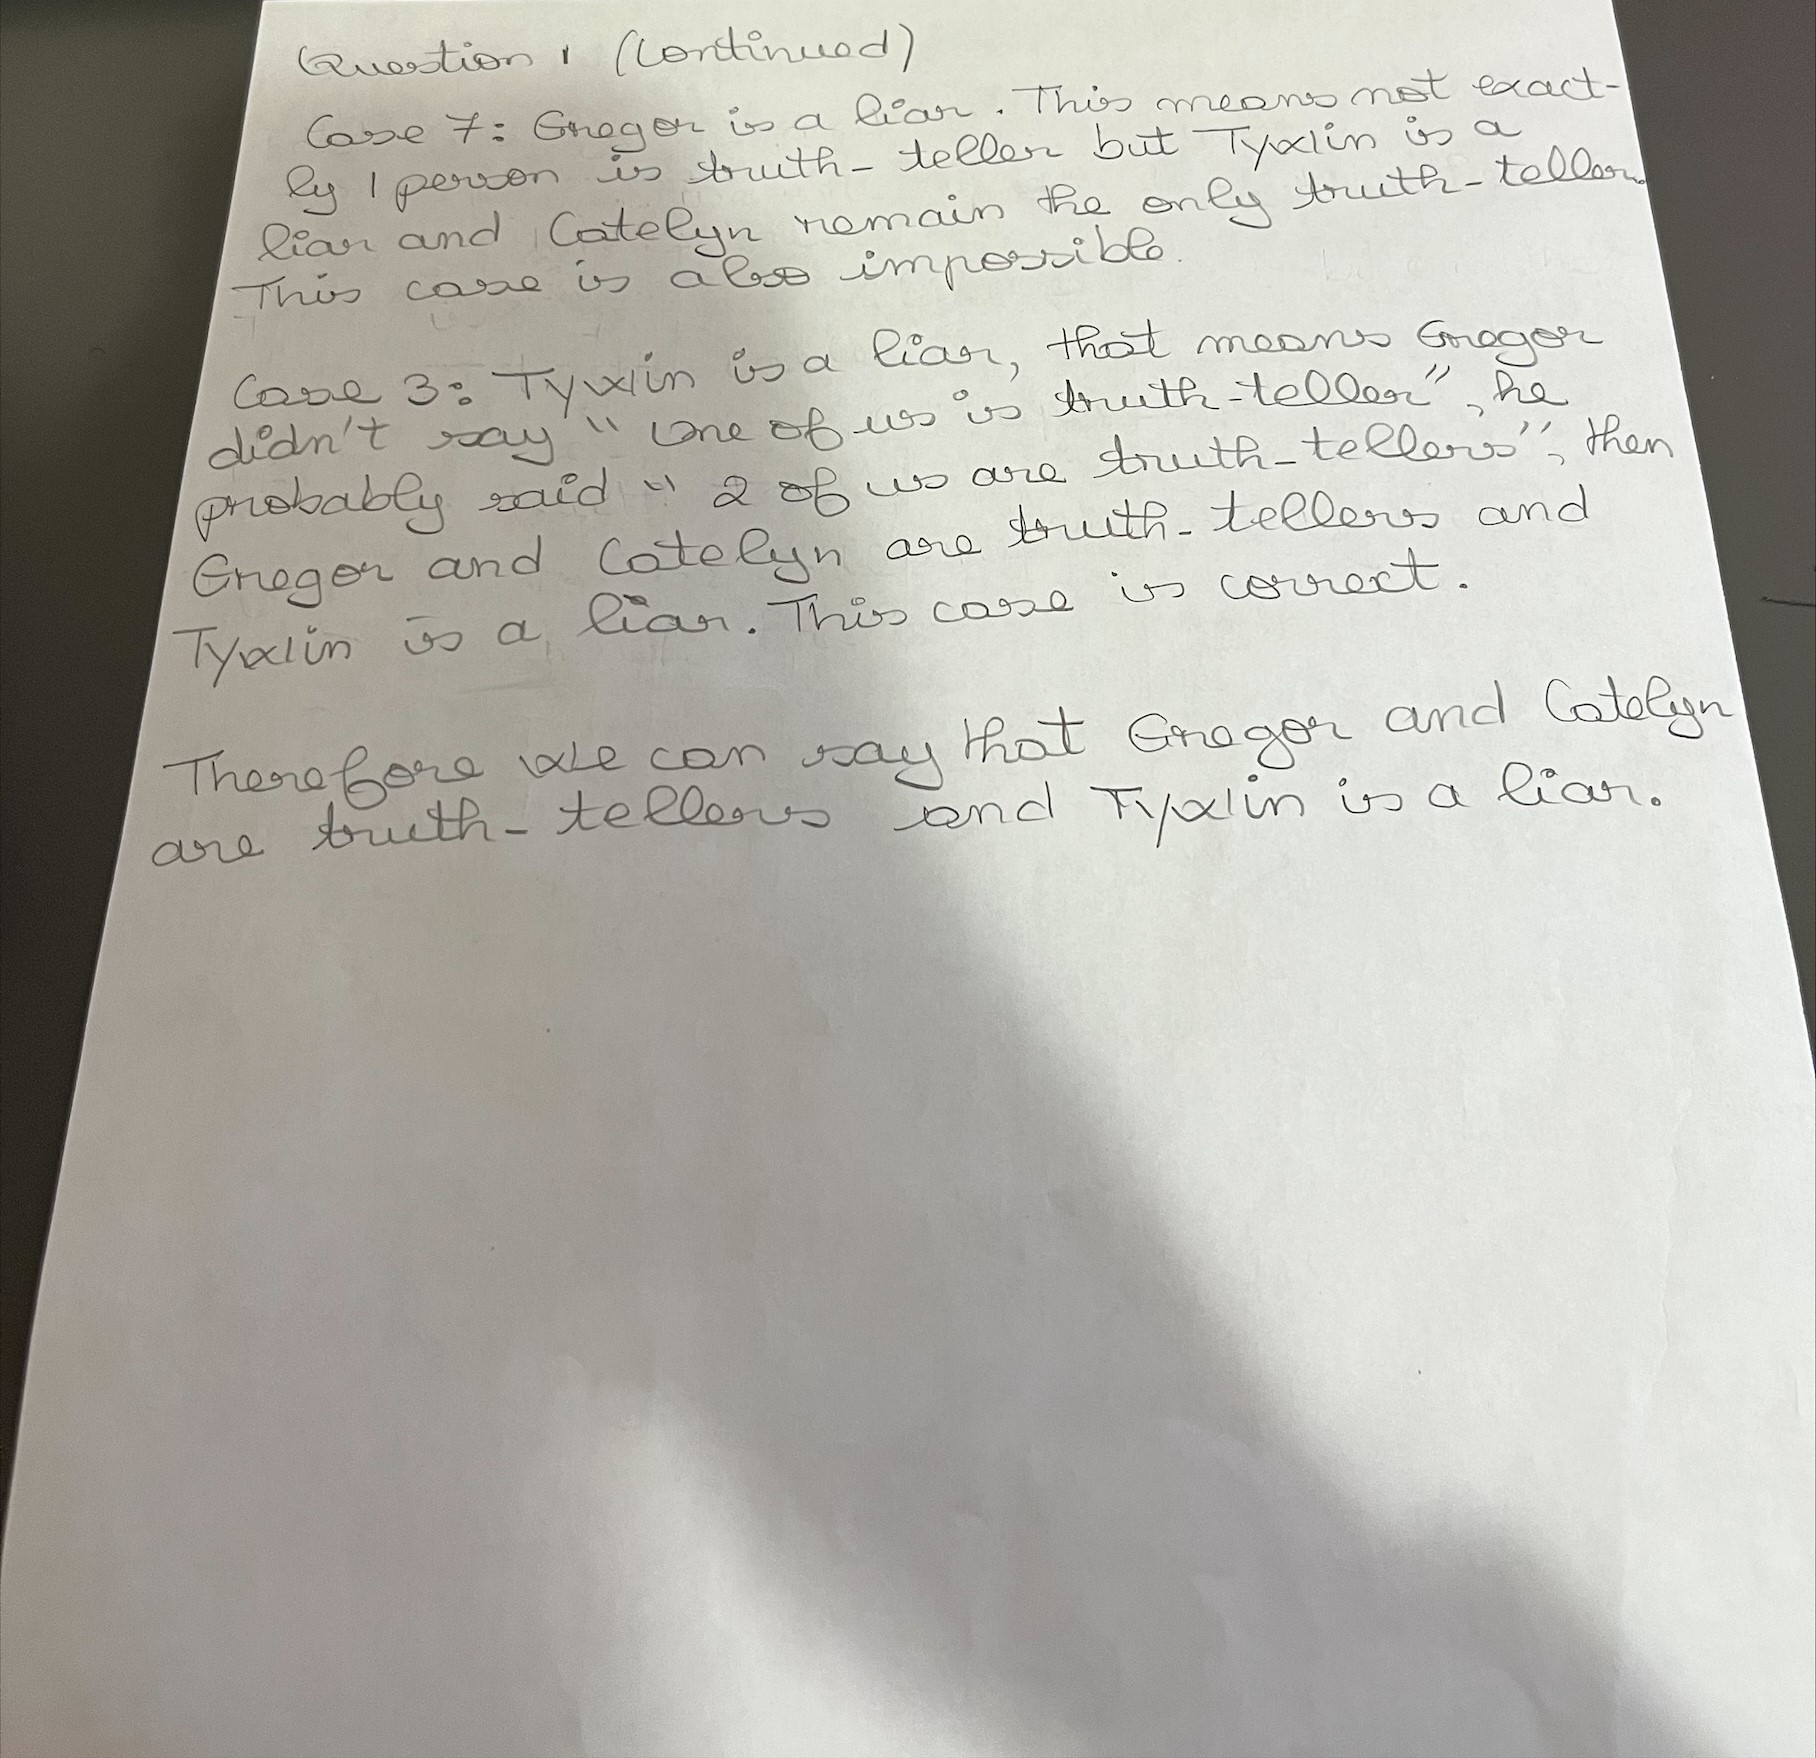 Question 1 (Continued)
Case 7: Gregor is a liar. This means not exact-
ly 1 person is truth-teller but Tywin is a
liar and Catelyn remain the only truth-teller.
This case is also impossible.
Case 3: Tywin is a liar, that means Gregor
didn't say " One of us is truth-teller", he
probably said " 2 of us are truth-tellers", then
Gregor and Catelyn are truth-tellers and
Tywlin is a liar. This case is correct.
Therefore we can say that Gregor and Catelyn
are truth-tellers and Tywlin is a liar.